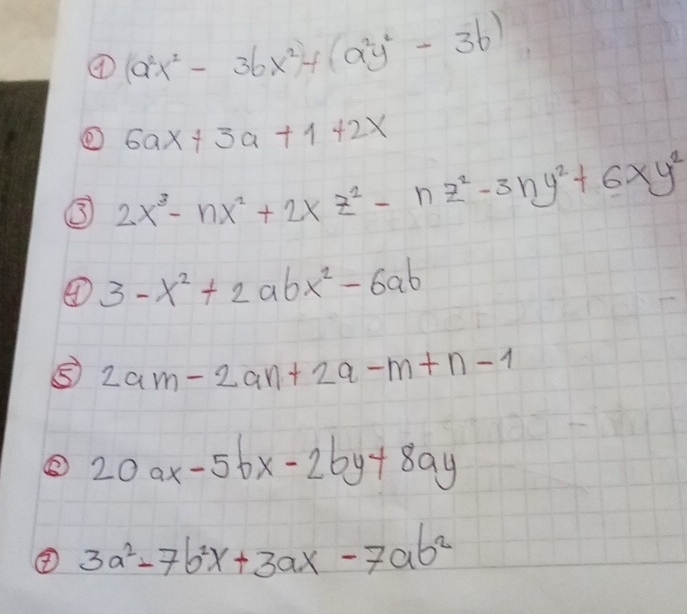 ① (a²x² - 3bx²)+(a²y² - 3b)
② 6ax+3a+1+2x
③ 2x³-nx²+2xz²-nz²-3ny²+6xy²
④ 3-x²+2abx²-6ab
⑤ 2am-2an+2a-m+n-1
⑥ 20ax-5bx-2by+8ay
⑦ 3a²-7b²x+3ax-7ab²